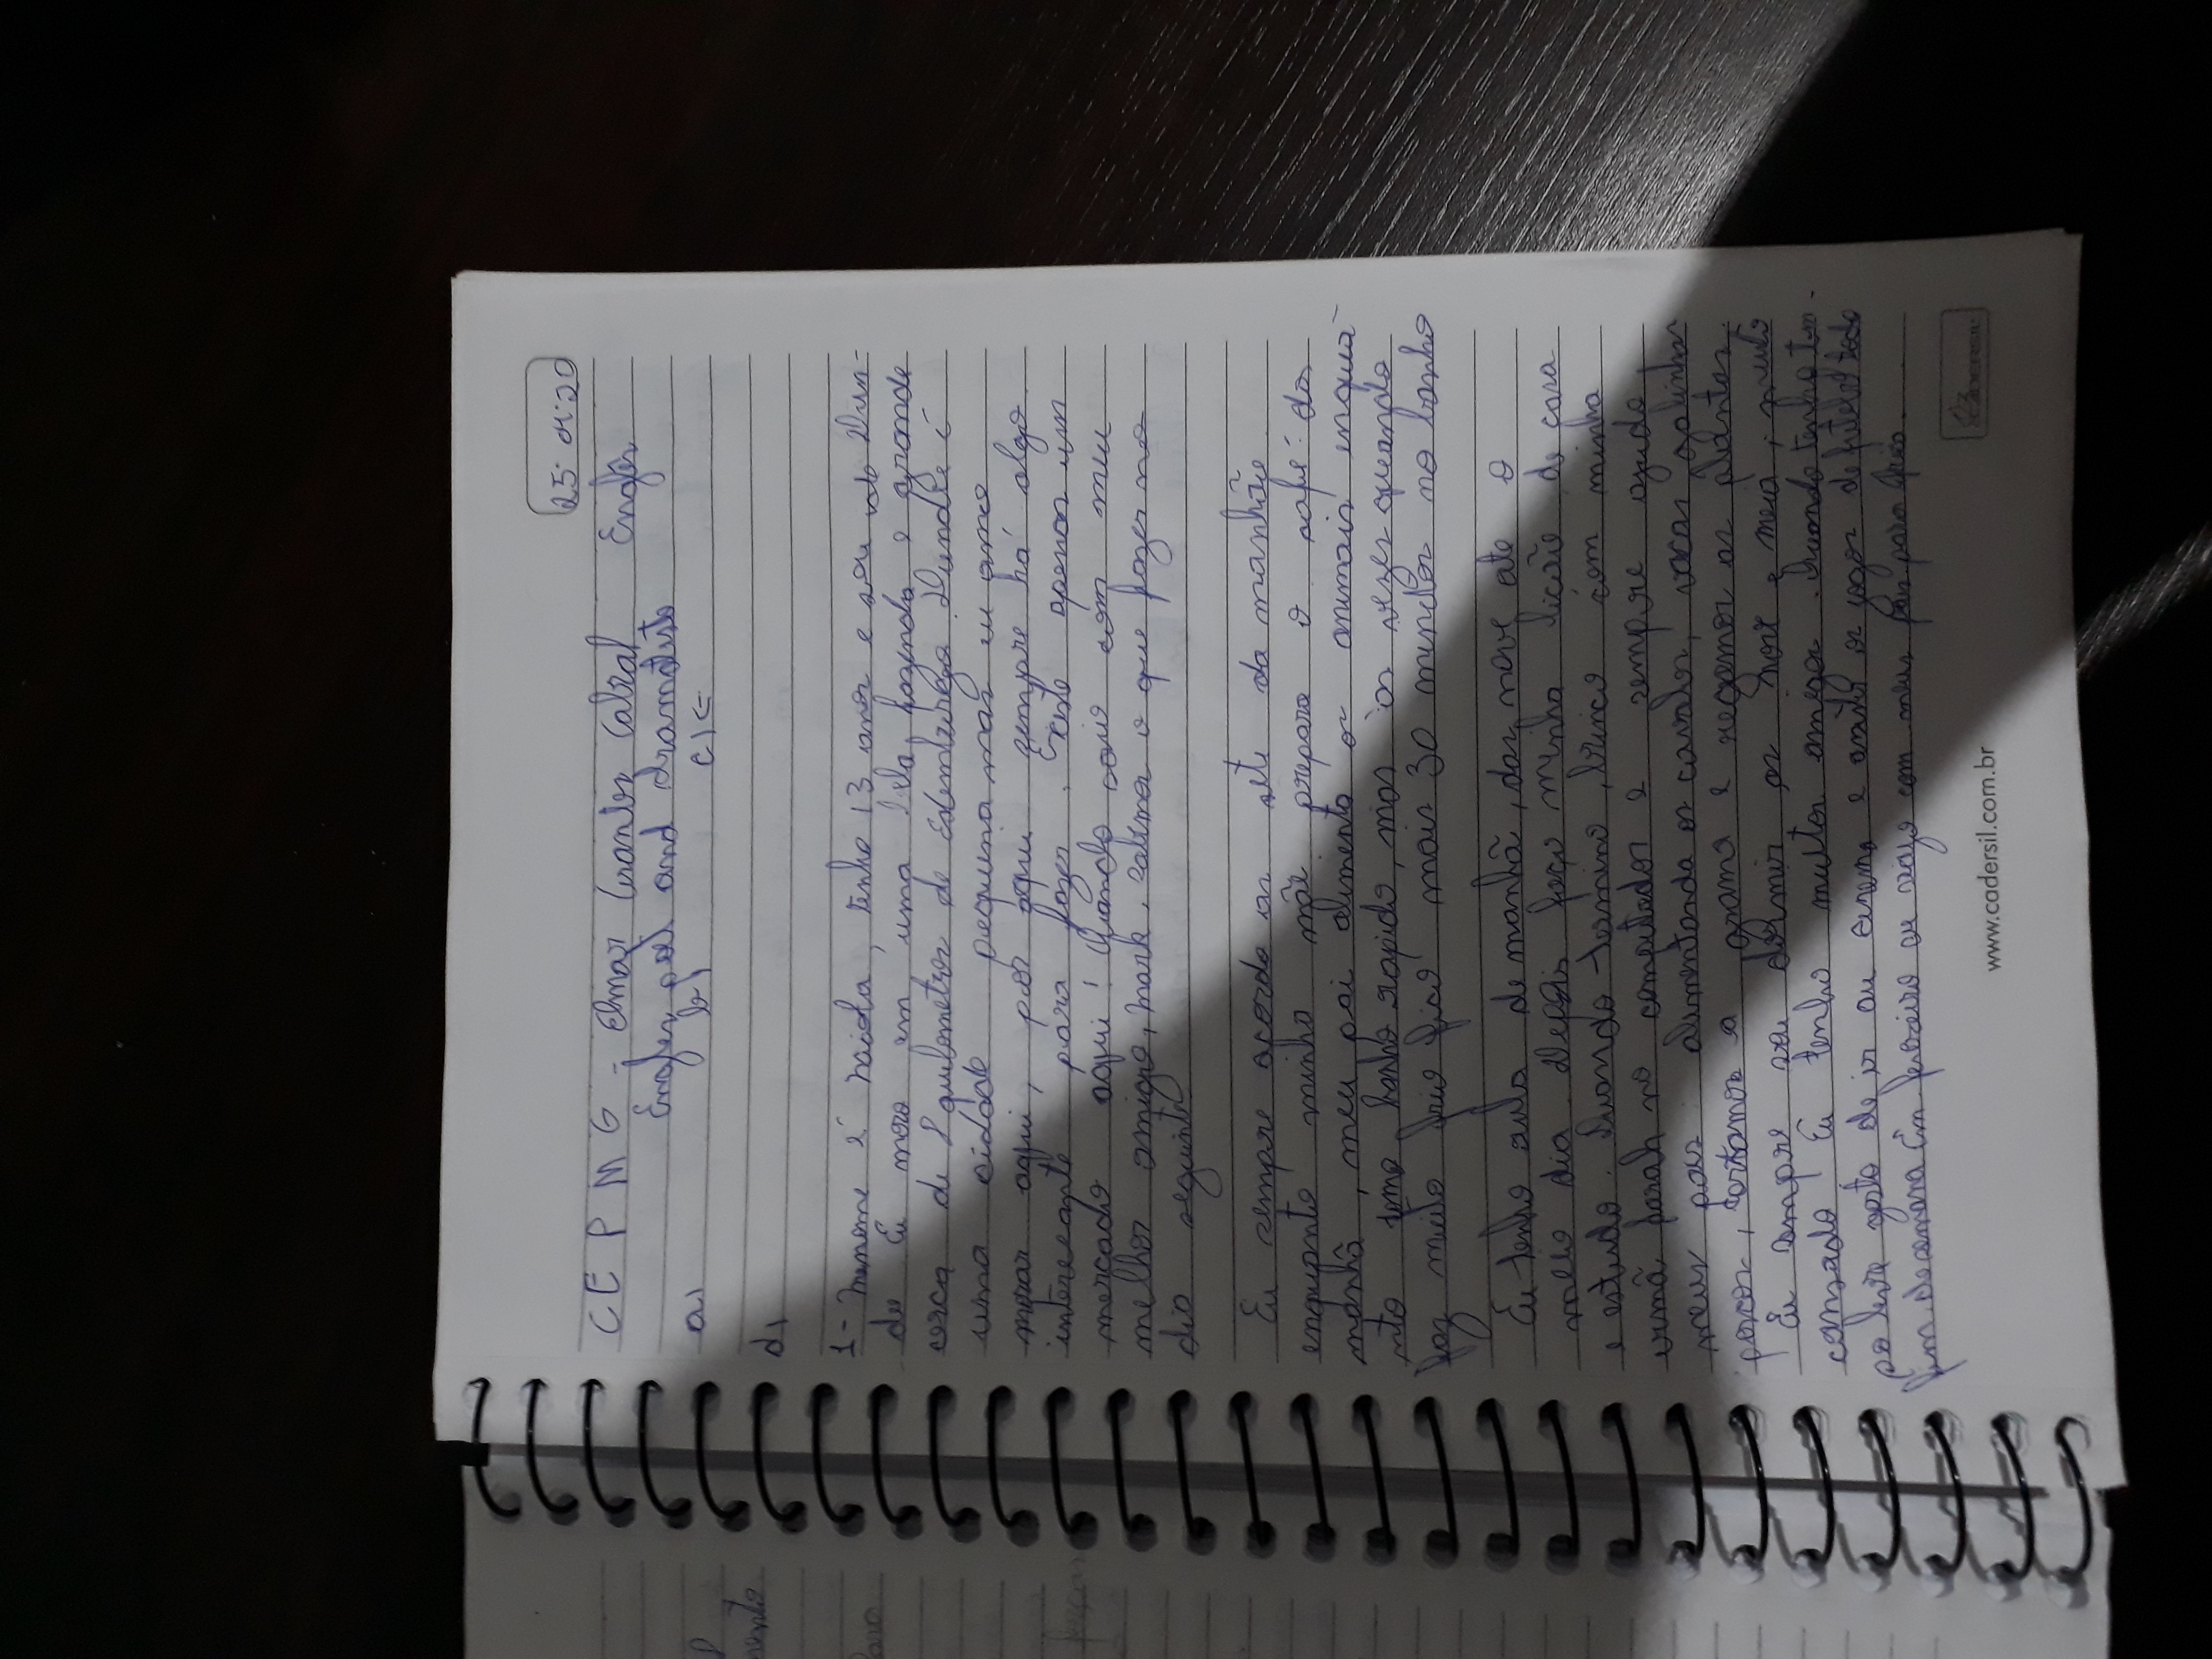 25 04 20
CEPMG - Elmar Arantes Cabral Engles
Engles poet and dramatist
a) b) c) ⇐
d)
1- Menome é Naiola, tenho 13 anos e sou de Dun-
de Eu moro em uma bela fazenda e grande
cerca de 8 quilometros de Edemburgo. Dundee é
uma cidade pequena mas eu amo
morar aqui, por aqui sempre há algo
interecante para fazer. Existe apenas um
mercado aqui! Quando saio com meu
melhor amigo, Mark, sabimos o que fazer no
dia seguinte
Eu sempre acordo as sete da manhão
enquanto minha mãe prepara o café da
manhã, meu pai alimenta os animais enqua-
nto tomo banho rapido, mas às vezes quando
faz muito frio fico mais 30 minutos no banho
Eu tenho aula de manhã, das nove ate o
meio dia Depois faço minha licão de casa
e estudo. Quando termino, brinco com minha
irmã Sarah no computador e sempre ajudo
meus pais alimentando os cavalos, vacas, galinhas
porcos, cortamos a grama e regamos as plantas.
Eu sempre vou dormir as nove e meia, muito
cansado. Eu tenho muitos amigos. Quando tenho tem-
po livre gosto de ir au cinema e assistir os jogos de futebol todo
fim de semana Em fevereiro eu viajo com meus pais para
www.cadersil.com.br
CADERSIL